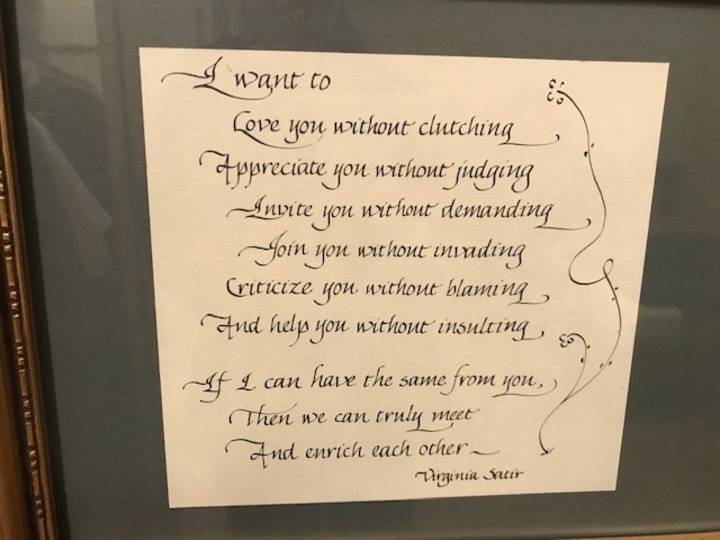 I want to
Love you without clutching
Appreciate you without judging
Invite you without demanding
Join you without invading
Criticize you without blaming
And help you without insulting
If I can have the same from you,
Then we can truly meet
And enrich each other
Virginia Satir